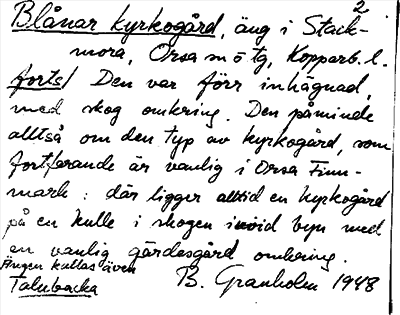 2
Blånar kyrkogård, äng i Stack-
mora, Orsa sn ö tg, Kopparb. l.
forts/ Den var förr inhägnad,
med skog omkring. Den påminde
alltså om den typ av kyrkogård, som
fortfarande är vanlig i Orsa Finn-
mark: där ligger alltid en kyrkogård
på en kulle i skogen invid byn med
en vanlig gärdesgård omkring.
Ängen kallas även
Talubacka
B. Granholm 1948